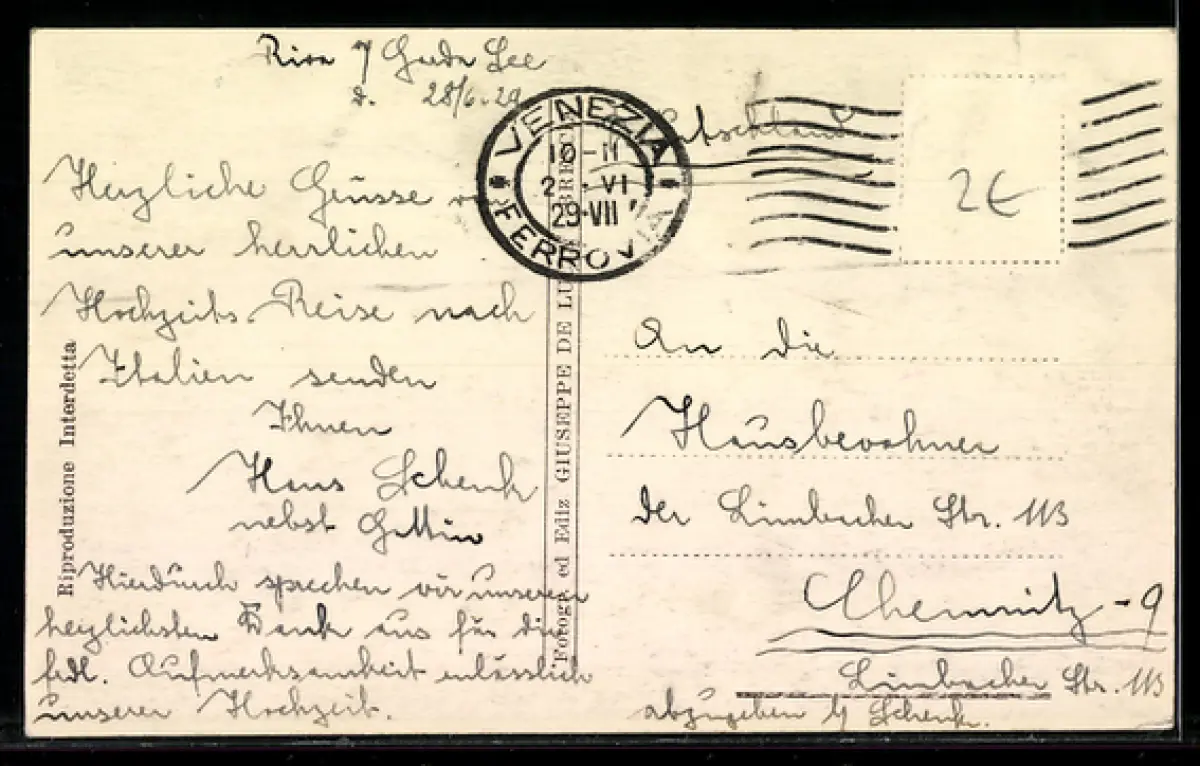 Riva / Garda See
d. 28/6.29
Herzliche Grüsse von
unserer herrlichen
Hochzeits-Reise nach
Italien senden
Ihnen
Hans Schenk
nebst Gattin
Hierdurch sprechen wir unseren
herzlichsten Dank aus für die
frdl. Aufmerksamkeit anlässlich
unserer Hochzeit.
Riproduzione Interdetta
Fotogr. ed Ediz GIUSEPPE DE LU
BRE
VENEZIA
10-11
VI
29·VII
FERROVIA
Deutschland
2€
An die
Hausbewohner
der Limbacher Str. 113
Chemnitz-9
Limbacher Str. 113
abzugeben b/ Schenk.